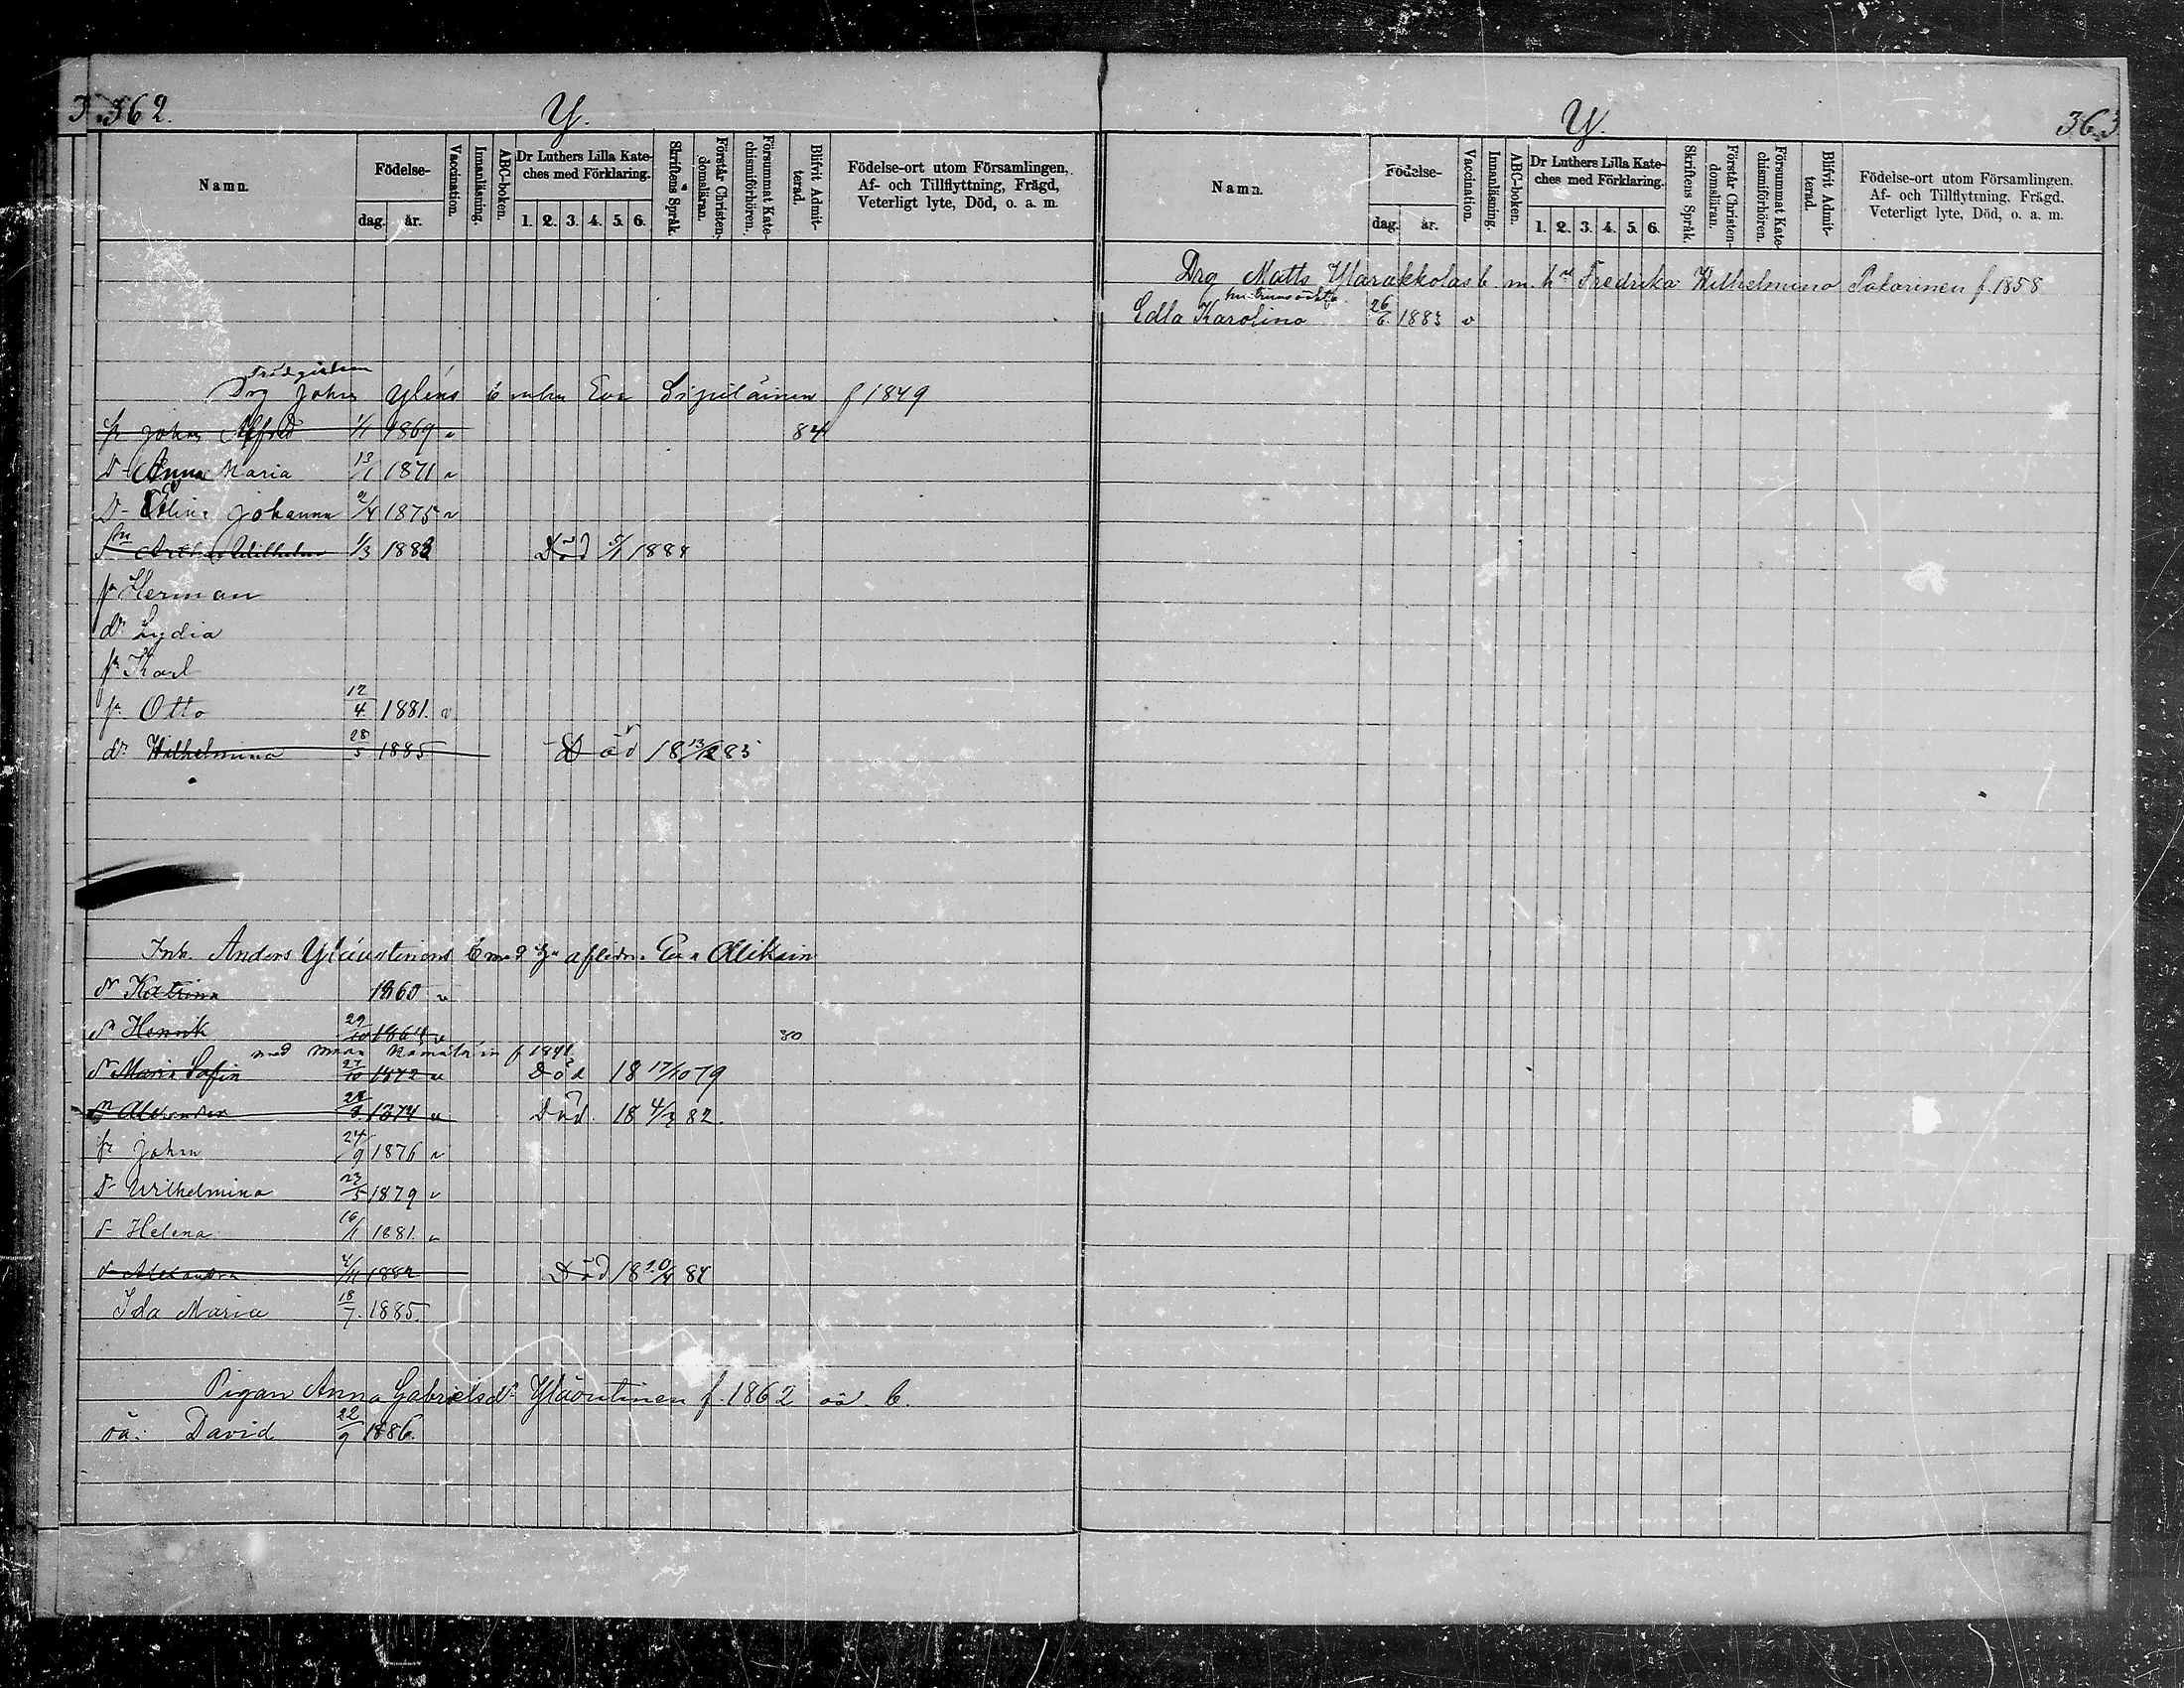 362.
Y.
Namn.
Födelse-
dag. år.
Vaccination.
Innanläsning.
ABC-boken.
Dr Luthers Lilla Kate-
ches med Förklaring.
1. 2. 3. 4. 5. 6.
Skriftens Språk.
Förstår Christen-
domsläran.
Försummat Kate-
chismiförhören.
Blifvit Admit-
terad.
Födelse-ort utom Församlingen,
Af- och Tillflyttning, Frägd,
Veterligt lyte, Död, o. a. m.
Drg Johan Yléns b m hu Eva Sipiläinen f 1849
Johan Alfred 1/1 1869 v 84
Dr Anna Maria 13/1 1871 v
Dr Elina Johanna 2/4 1875 v
Arthur Wilhelm 1/3 1883 Död 5/1 1884
sn Herman
dr Lydia
sn Karl
sn Otto 12/4 1881. v
dr Wilhelmina 28/5 1885 Död 18 13/12 85
Inh. Anders Yläoutinens b med Eva Mikain
dr Katrina 1860 v
sn Henrik 29/10 1864 v 80
med Maria f 1841
dr Maria Sofia 27/10 1872 v Död 18 17/10 79
sn Alexander 1874 v Död. 18 4/3 82.
sn Johan 24/9 1876 v
dr Wilhelmina 23/5 1879 v
dr Helena 16/1 1881. v
dr Alexandra 4/11 1882 Död 18 20/4 84
Ida Maria 18/7. 1885.
Pigan Anna Gabrielsdr Yläoutinen f. 1862 oä. b.
oä. David 22/9 1886.
Y.
363
Namn.
Födelse-
dag. år.
Vaccination.
Innanläsning.
ABC-boken.
Dr Luthers Lilla Kate-
ches med Förklaring.
1. 2. 3. 4. 5. 6.
Skriftens Språk.
Förstår Christen-
domsläran.
Försummat Kate-
chismiförhören.
Blifvit Admit-
terad.
Födelse-ort utom Församlingen,
Af- och Tillflyttning, Frägd,
Veterligt lyte, Död, o. a. m.
Drg Matts Ylarakkolas b. m. hu Fredrika Wilhelmina Pakarinen f. 1858
hustruns oäkta
Edla Karolina 26/6. 1883 v